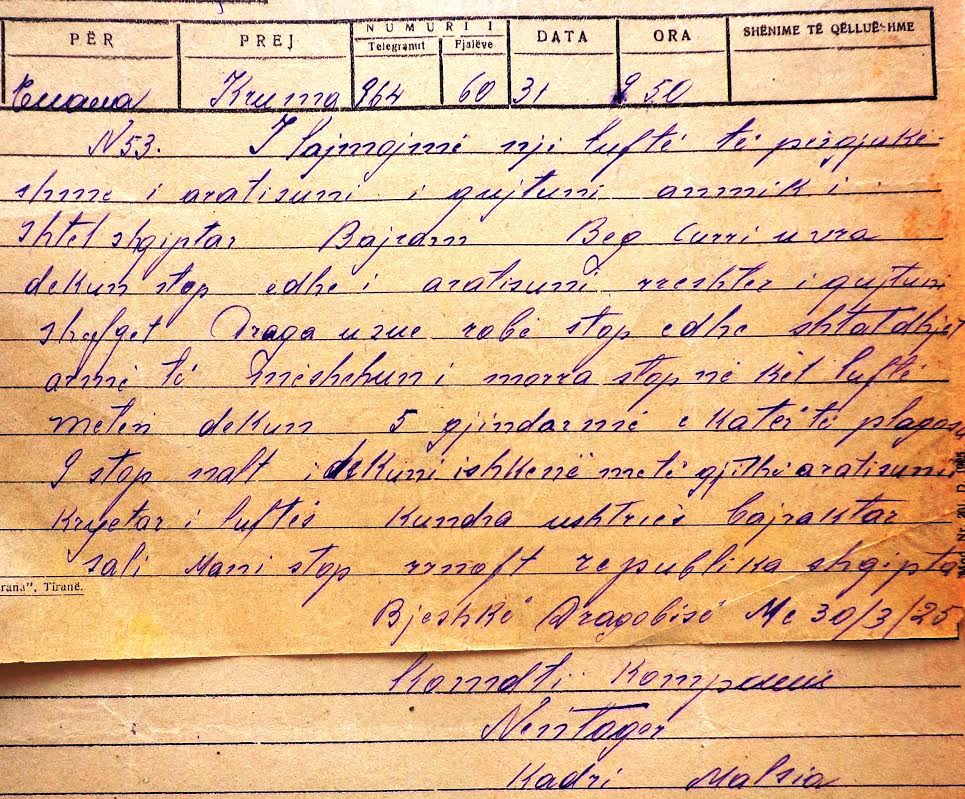 PËR PREJ NUMURI I Telegramit Fjalëve DATA ORA SHËNIME TË QËLLUESHME
Kruma 964 60 31 9 50
N 53. I lajmojmë nji luftë të përgjake-
shme i aratisuni i gujtuni anmik i
shtet shqiptar Bajram Beg Curri u vra
dekun stop edhe i aratisuni rreshter i gujtuni
shefqet Draga u zue robë stop edhe shtatdhjet
armë të mësheheni morra stop në kët luftë
metën dekun 5 gjindarmë e katër të plagosu
I stop nalt i dekuni ishkenë metë gjithë aratisuni
Kryetar i luftës kundra ushtriës bajraktar
sali Mani stop rrnoft republika shqipta
rana", Tiranë.
Bjeshkë Dragobisë Me 30/3/25
Komdti
Nentoger
Kadri Malsia